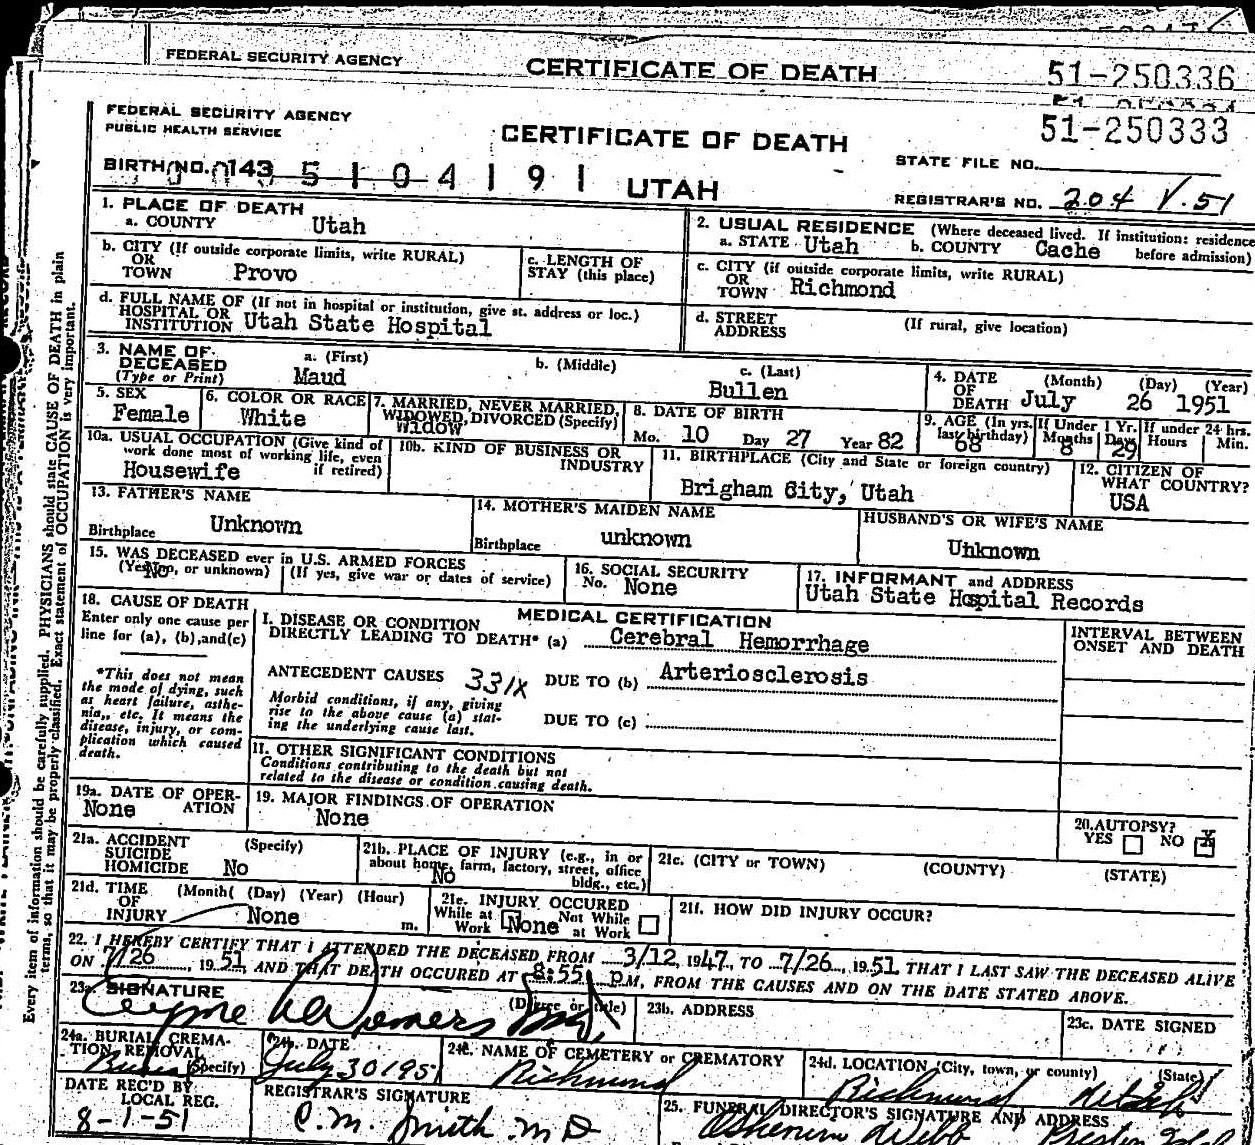 FEDERAL SECURITY AGENCY CERTIFICATE OF DEATH 51-250336
FEDERAL SECURITY AGENCY
PUBLIC HEALTH SERVICE
CERTIFICATE OF DEATH 51-250333
STATE FILE NO.
BIRTH NO. 143 5104191 UTAH
REGISTRAR'S NO. 204 V.51
1. PLACE OF DEATH
a. COUNTY Utah
2. USUAL RESIDENCE (Where deceased lived. If institution: residence
a. STATE Utah b. COUNTY Cache before admission)
b. CITY (If outside corporate limits, write RURAL)
OR
TOWN Provo
c. LENGTH OF
STAY (this place)
c. CITY (if outside corporate limits, write RURAL)
OR
TOWN Richmond
d. FULL NAME OF (If not in hospital or institution, give st. address or loc.)
HOSPITAL OR
INSTITUTION Utah State Hospital
d. STREET
ADDRESS
(If rural, give location)
3. NAME OF
DECEASED
(Type or Print)
a. (First)
Maud
b. (Middle)
c. (Last)
Bullen
4. DATE (Month) (Day) (Year)
OF
DEATH July 26 1951
5. SEX
Female
6. COLOR OR RACE
White
7. MARRIED, NEVER MARRIED,
WIDOWED, DIVORCED (Specify)
Widow
8. DATE OF BIRTH
Mo. 10 Day 27 Year 82
9. AGE (In yrs.
last birthday)
68
If Under 1 Yr.
Months Days
8 29
If under 24 hrs.
Hours Min.
10a. USUAL OCCUPATION (Give kind of
work done most of working life, even
if retired)
Housewife
10b. KIND OF BUSINESS OR
INDUSTRY
11. BIRTHPLACE (City and State or foreign country)
Brigham City, Utah
12. CITIZEN OF
WHAT COUNTRY?
USA
13. FATHER'S NAME
Unknown
Birthplace
14. MOTHER'S MAIDEN NAME
unknown
Birthplace
HUSBAND'S OR WIFE'S NAME
Unknown
15. WAS DECEASED ever in U.S. ARMED FORCES
(Yes, no, or unknown) (If yes, give war or dates of service)
No
16. SOCIAL SECURITY
No. None
17. INFORMANT and ADDRESS
Utah State Hospital Records
18. CAUSE OF DEATH
Enter only one cause per
line for (a), (b), and (c)
*This does not mean
the mode of dying, such
as heart failure, asthe-
nia,, etc. It means the
disease, injury, or com-
plication which caused
death.
MEDICAL CERTIFICATION
I. DISEASE OR CONDITION
DIRECTLY LEADING TO DEATH* (a) Cerebral Hemorrhage
ANTECEDENT CAUSES 331X DUE TO (b) Arteriosclerosis
Morbid conditions, if any, giving
rise to the above cause (a) stat-
ing the underlying cause last.
DUE TO (c)
INTERVAL BETWEEN
ONSET AND DEATH
II. OTHER SIGNIFICANT CONDITIONS
Conditions contributing to the death but not
related to the disease or condition causing death.
19a. DATE OF OPER-
ATION
None
19. MAJOR FINDINGS OF OPERATION
None
20. AUTOPSY?
YES NO X
21a. ACCIDENT
SUICIDE
HOMICIDE
(Specify)
No
21b. PLACE OF INJURY (e.g., in or
about home, farm, factory, street, office
bldg., etc.)
No
21c. (CITY or TOWN) (COUNTY) (STATE)
21d. TIME (Month( (Day) (Year) (Hour)
OF
INJURY None m.
21e. INJURY OCCURED
While at Work None Not While at Work
21f. HOW DID INJURY OCCUR?
22. I HEREBY CERTIFY THAT I ATTENDED THE DECEASED FROM 3/12, 1947, TO 7/26, 1951 THAT I LAST SAW THE DECEASED ALIVE
ON 7/26, 1951, AND THAT DEATH OCCURED AT 8:55 P.M, FROM THE CAUSES AND ON THE DATE STATED ABOVE.
23a. SIGNATURE
(Degree or title)
23b. ADDRESS
23c. DATE SIGNED
24a. BURIAL, CREMA-
TION, REMOVAL
(Specify)
Burial
24b. DATE
July 30 1951
24c. NAME OF CEMETERY or CREMATORY
Richmond
24d. LOCATION (City, town, or county) (State)
Richmond Utah
DATE REC'D BY
LOCAL REG.
8-1-51
REGISTRAR'S SIGNATURE
C. M. Smith M D
25. FUNERAL DIRECTOR'S SIGNATURE AND ADDRESS
Webb
Every item of information should be carefully supplied. PHYSICIANS should state CAUSE OF DEATH in plain
terms, so that it may be properly classified. Exact statement of OCCUPATION is very important.